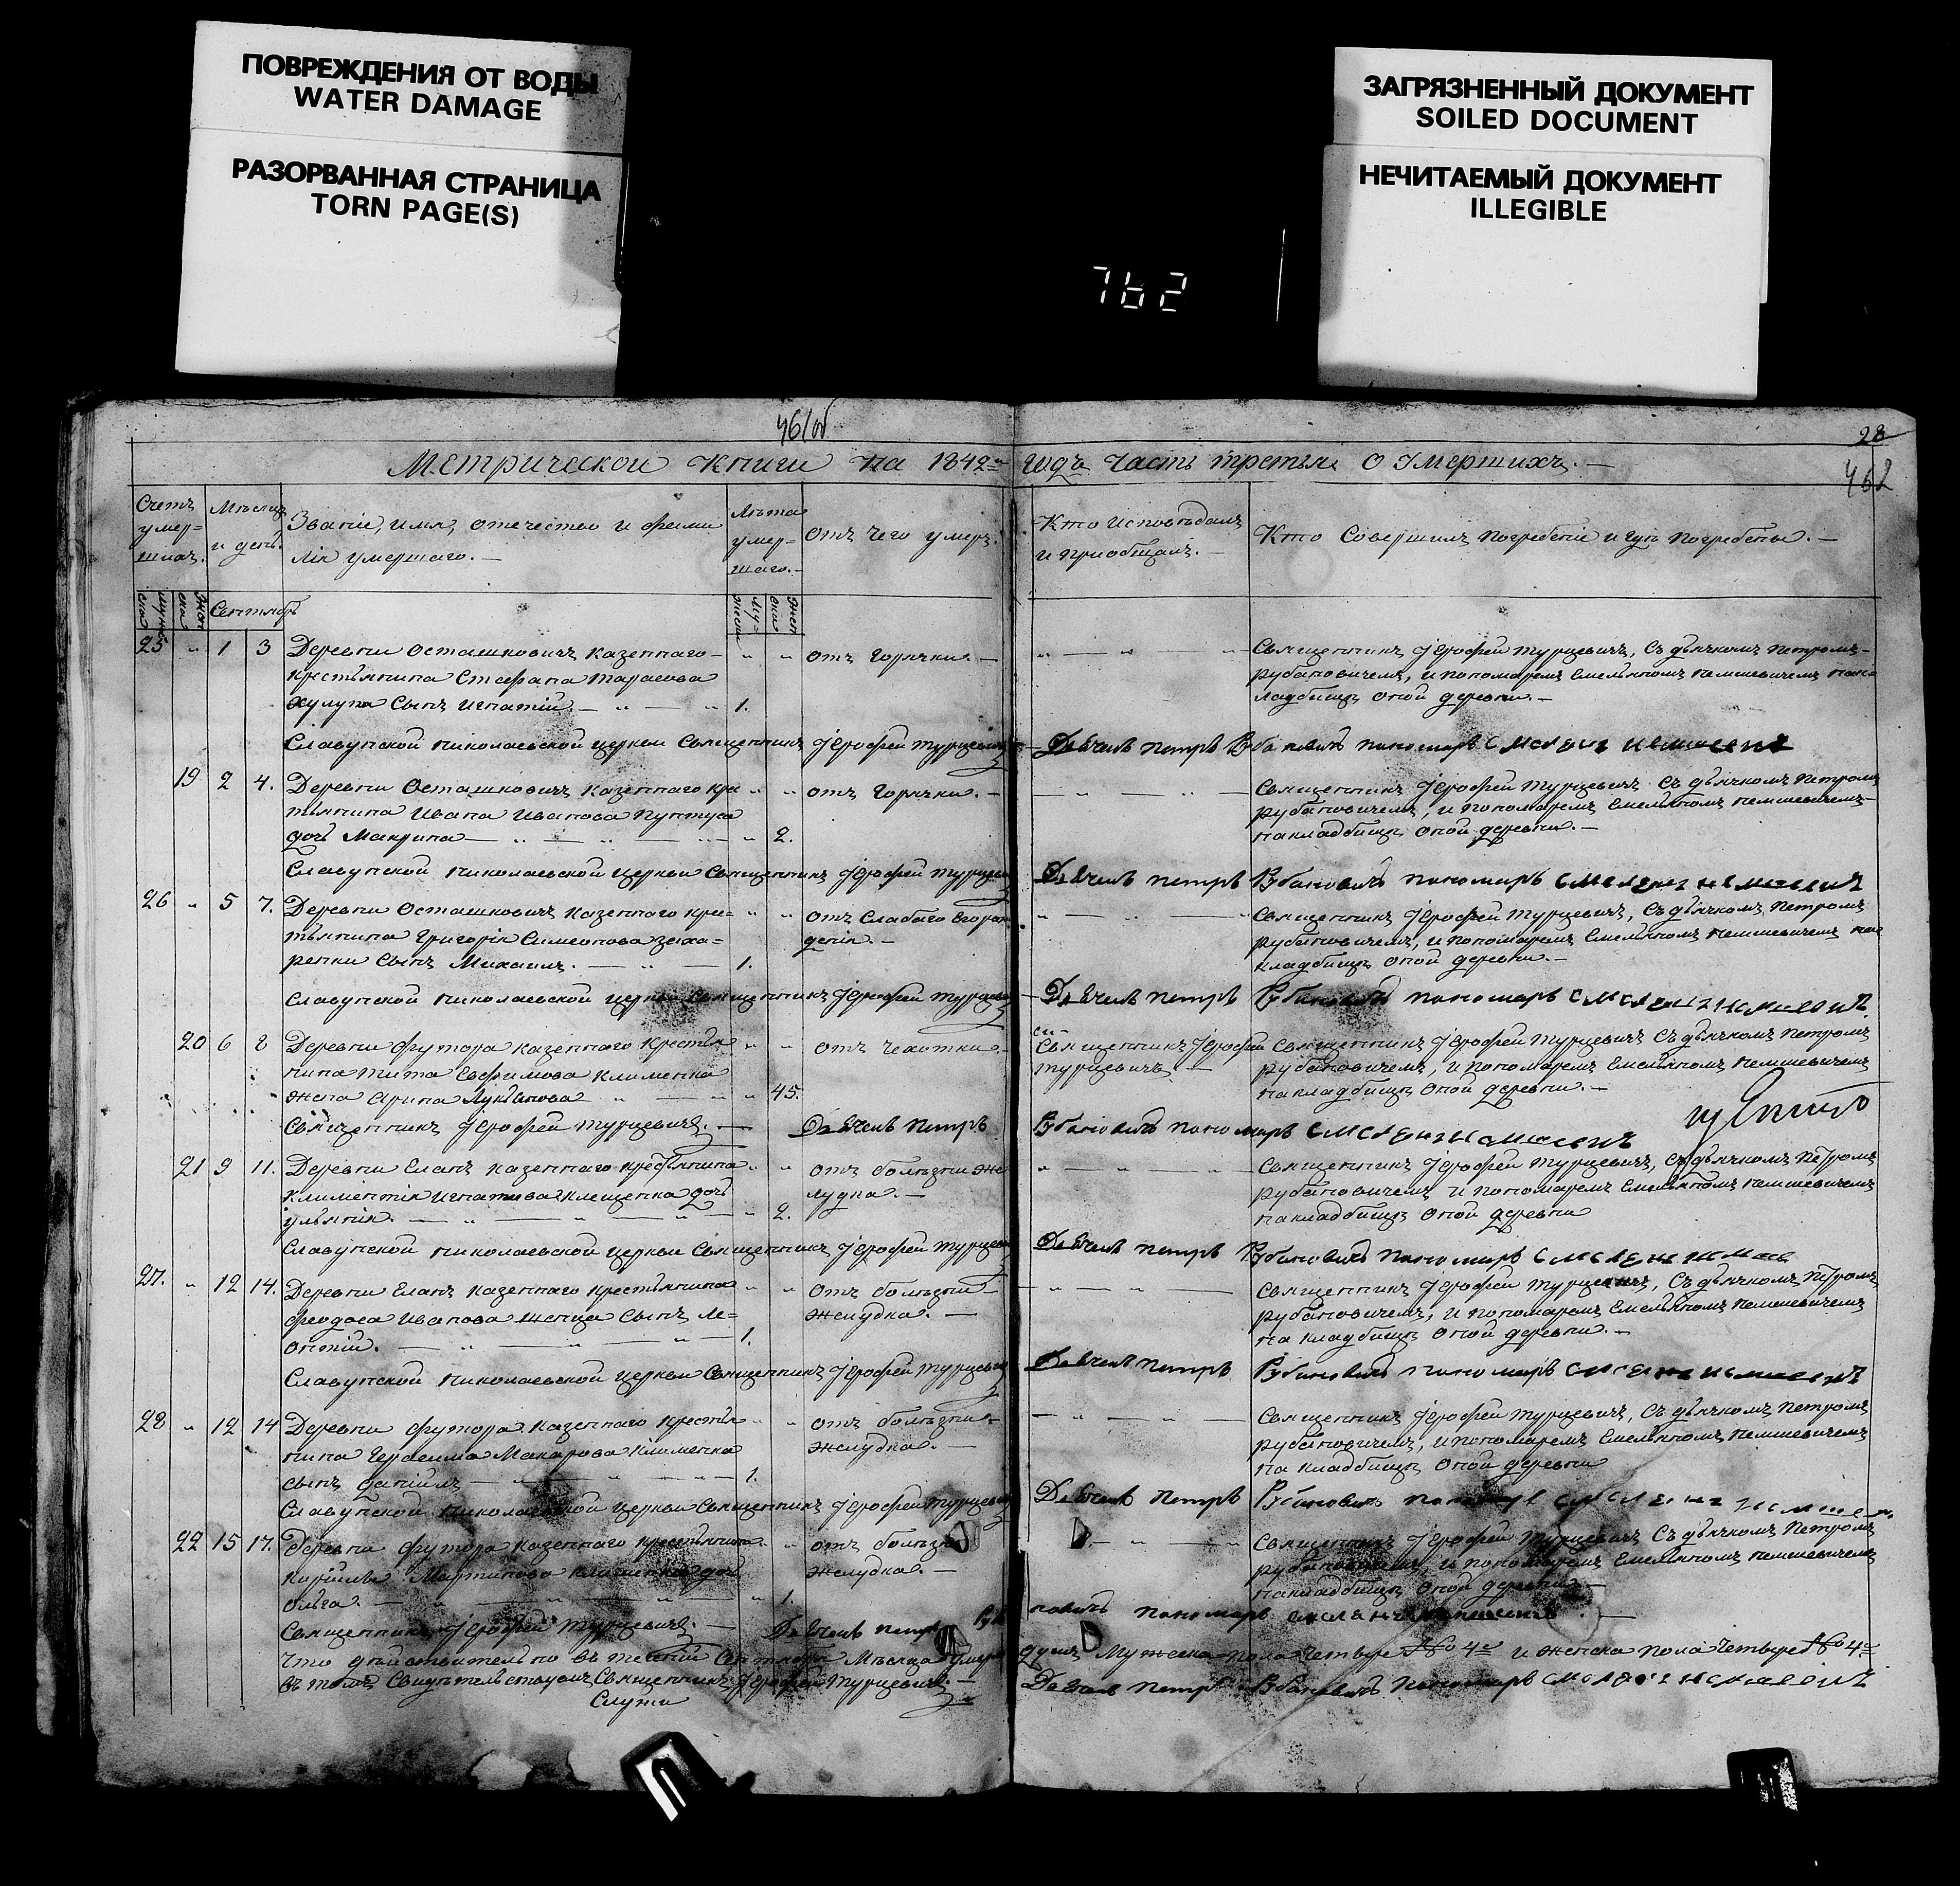 ПОВРЕЖДЕНИЯ ОТ ВОДЫ
WATER DAMAGE
РАЗОРВАННАЯ СТРАНИЦА
TORN PAGE(S)
ЗАГРЯЗНЕННЫЙ ДОКУМЕНТ
SOILED DOCUMENT
НЕЧИТАЕМЫЙ ДОКУМЕНТ
ILLEGIBLE
762
461об
28
462
Метрической Книги на 1842й годъ часть третья О Умершихъ.
Счетъ умер=шихъ.
Мѣсяцъ и день.
Званіе, имя, отечество и фамилія умершаго.
Лѣта умер=шаго.
отъ чего умеръ.
Кто исповѣдалъ и приобщалъ.
Кто совершилъ погребеніе и гдѣ погребены.
Сентябрь
25 " 1 3 Деревни Осташковичъ казеннаго " " отъ горячки. Священникъ Іерофей Турцевичъ, съ дьячкомъ Петромъ
крестьянина Стефана Тарасова Рубановичемъ, и пономаремъ Емельяномъ Немшевичемъ на к=
Хулупа сынъ Игнатій. 1. ладбищѣ оной деревни.
Славупской Николаевской церкви Священникъ Іерофей Турцевичъ Дьячекъ Петръ Рубановичъ пономарь
19 2 4. Деревни Осташковичъ казеннаго кре " " отъ горячки. Священникъ Іерофей Турцевичъ съ дьячкомъ Петромъ
тьянина Ивана Иванова Пунтуса Рубановичемъ, и пономаремъ Емельяномъ Немшевичемъ
дочь Макрина 2. на кладбищѣ оной деревни.
Славупской Николаевской церкви Священникъ Іерофей Турцевичъ Дьячекъ Петръ Рубановичъ пономарь
26 " 5 7. Деревни Осташковичъ казеннаго кре= " " отъ слабаго его рож Священникъ Іерофей Турцевичъ, съ дьячкомъ Петромъ
тьянина Григорія Симеонова Заха= денія. Рубановичемъ, и пономаремъ Емельяномъ Немшевичемъ на
ренки сынъ Михаилъ. 1. кладбищѣ оной деревни.
Славупской Николаевской церкви Священникъ Іерофей Турцевичъ Дьячекъ Петръ Рубановичъ пономарь
20 6 8 Деревни Футора казеннаго крестья " " отъ чехотки. Священникъ Іерофей Священникъ Іерофей Турцевичъ съ дьячкомъ Петромъ
нина Тита Евфимова Клименка Турцевичъ. Рубановичемъ, и пономаремъ Емельяномъ Немшевичемъ
жена Арина Лукьянова 45. на кладбищѣ оной деревни.
Священникъ Іерофей Турцевичъ. Дьячекъ Петръ Рубановичъ пономарь
21 9 11. Деревни Еланъ казеннаго крестьянина " " отъ болѣзни же Священникъ Іерофей Турцевичъ, съ дьячкомъ Петромъ
Климентія Игнатова Клещенка дочь лудка. Рубановичемъ и пономаремъ Емельяномъ Немшевичемъ
Іульянія. 2. на кладбищѣ оной деревни
Славупской Николаевской церкви Священникъ Іерофей Турцевичъ Дьячекъ Петръ Рубановичъ пономарь
27. " 12 14. Деревни Еланъ казеннаго крестьянина " " отъ болѣзни Священникъ Іерофей Турцевичъ, съ дьячкомъ Петромъ
Феодоса Иванова Женца сынъ Ле= желудка. Рубановичемъ, и пономаремъ Емельяномъ Немшевичемъ
онтій. 1. на кладбищѣ оной деревни.
Славупской Николаевской церкви Священникъ Іерофей Турцевичъ Дьячекъ Петръ Рубановичъ пономарь
28 " 12 14 Деревни Футора казеннаго крестья " " отъ болѣзни Священникъ Іерофей Турцевичъ, съ дьячкомъ Петромъ
нина Герасима Макарова Клименка желудка. Рубановичемъ, и пономаремъ Емельяномъ Немшевичемъ
сынъ Даніилъ 1. на кладбищѣ оной деревни
Славупской Николаевской церкви Священникъ Іерофей Турцевичъ Дьячекъ Петръ Рубановичъ
22 15 17. Деревни Футора казеннаго крестьянина " отъ болѣзни Священникъ Іерофей Турцевичъ съ дьячкомъ Петромъ
Кирилы Мартинова Клименка дочь желудка. Рубановичемъ, и пономаремъ Емельяномъ Немшевичемъ
Ольга. 1. на кладбищѣ оной деревни
Священникъ Іерофей Турцевичъ. Дьячекъ Петръ Рубановичъ пономарь
Что дѣйствительно въ теченіи Сентября Мѣсяца умер душъ Мужеска пола четыре No 4е и женска пола четыре No 4е
въ томъ свидѣтельствуемъ Священникъ Іерофей Турцевичъ. Дьячекъ Петръ Рубановичъ пономарь